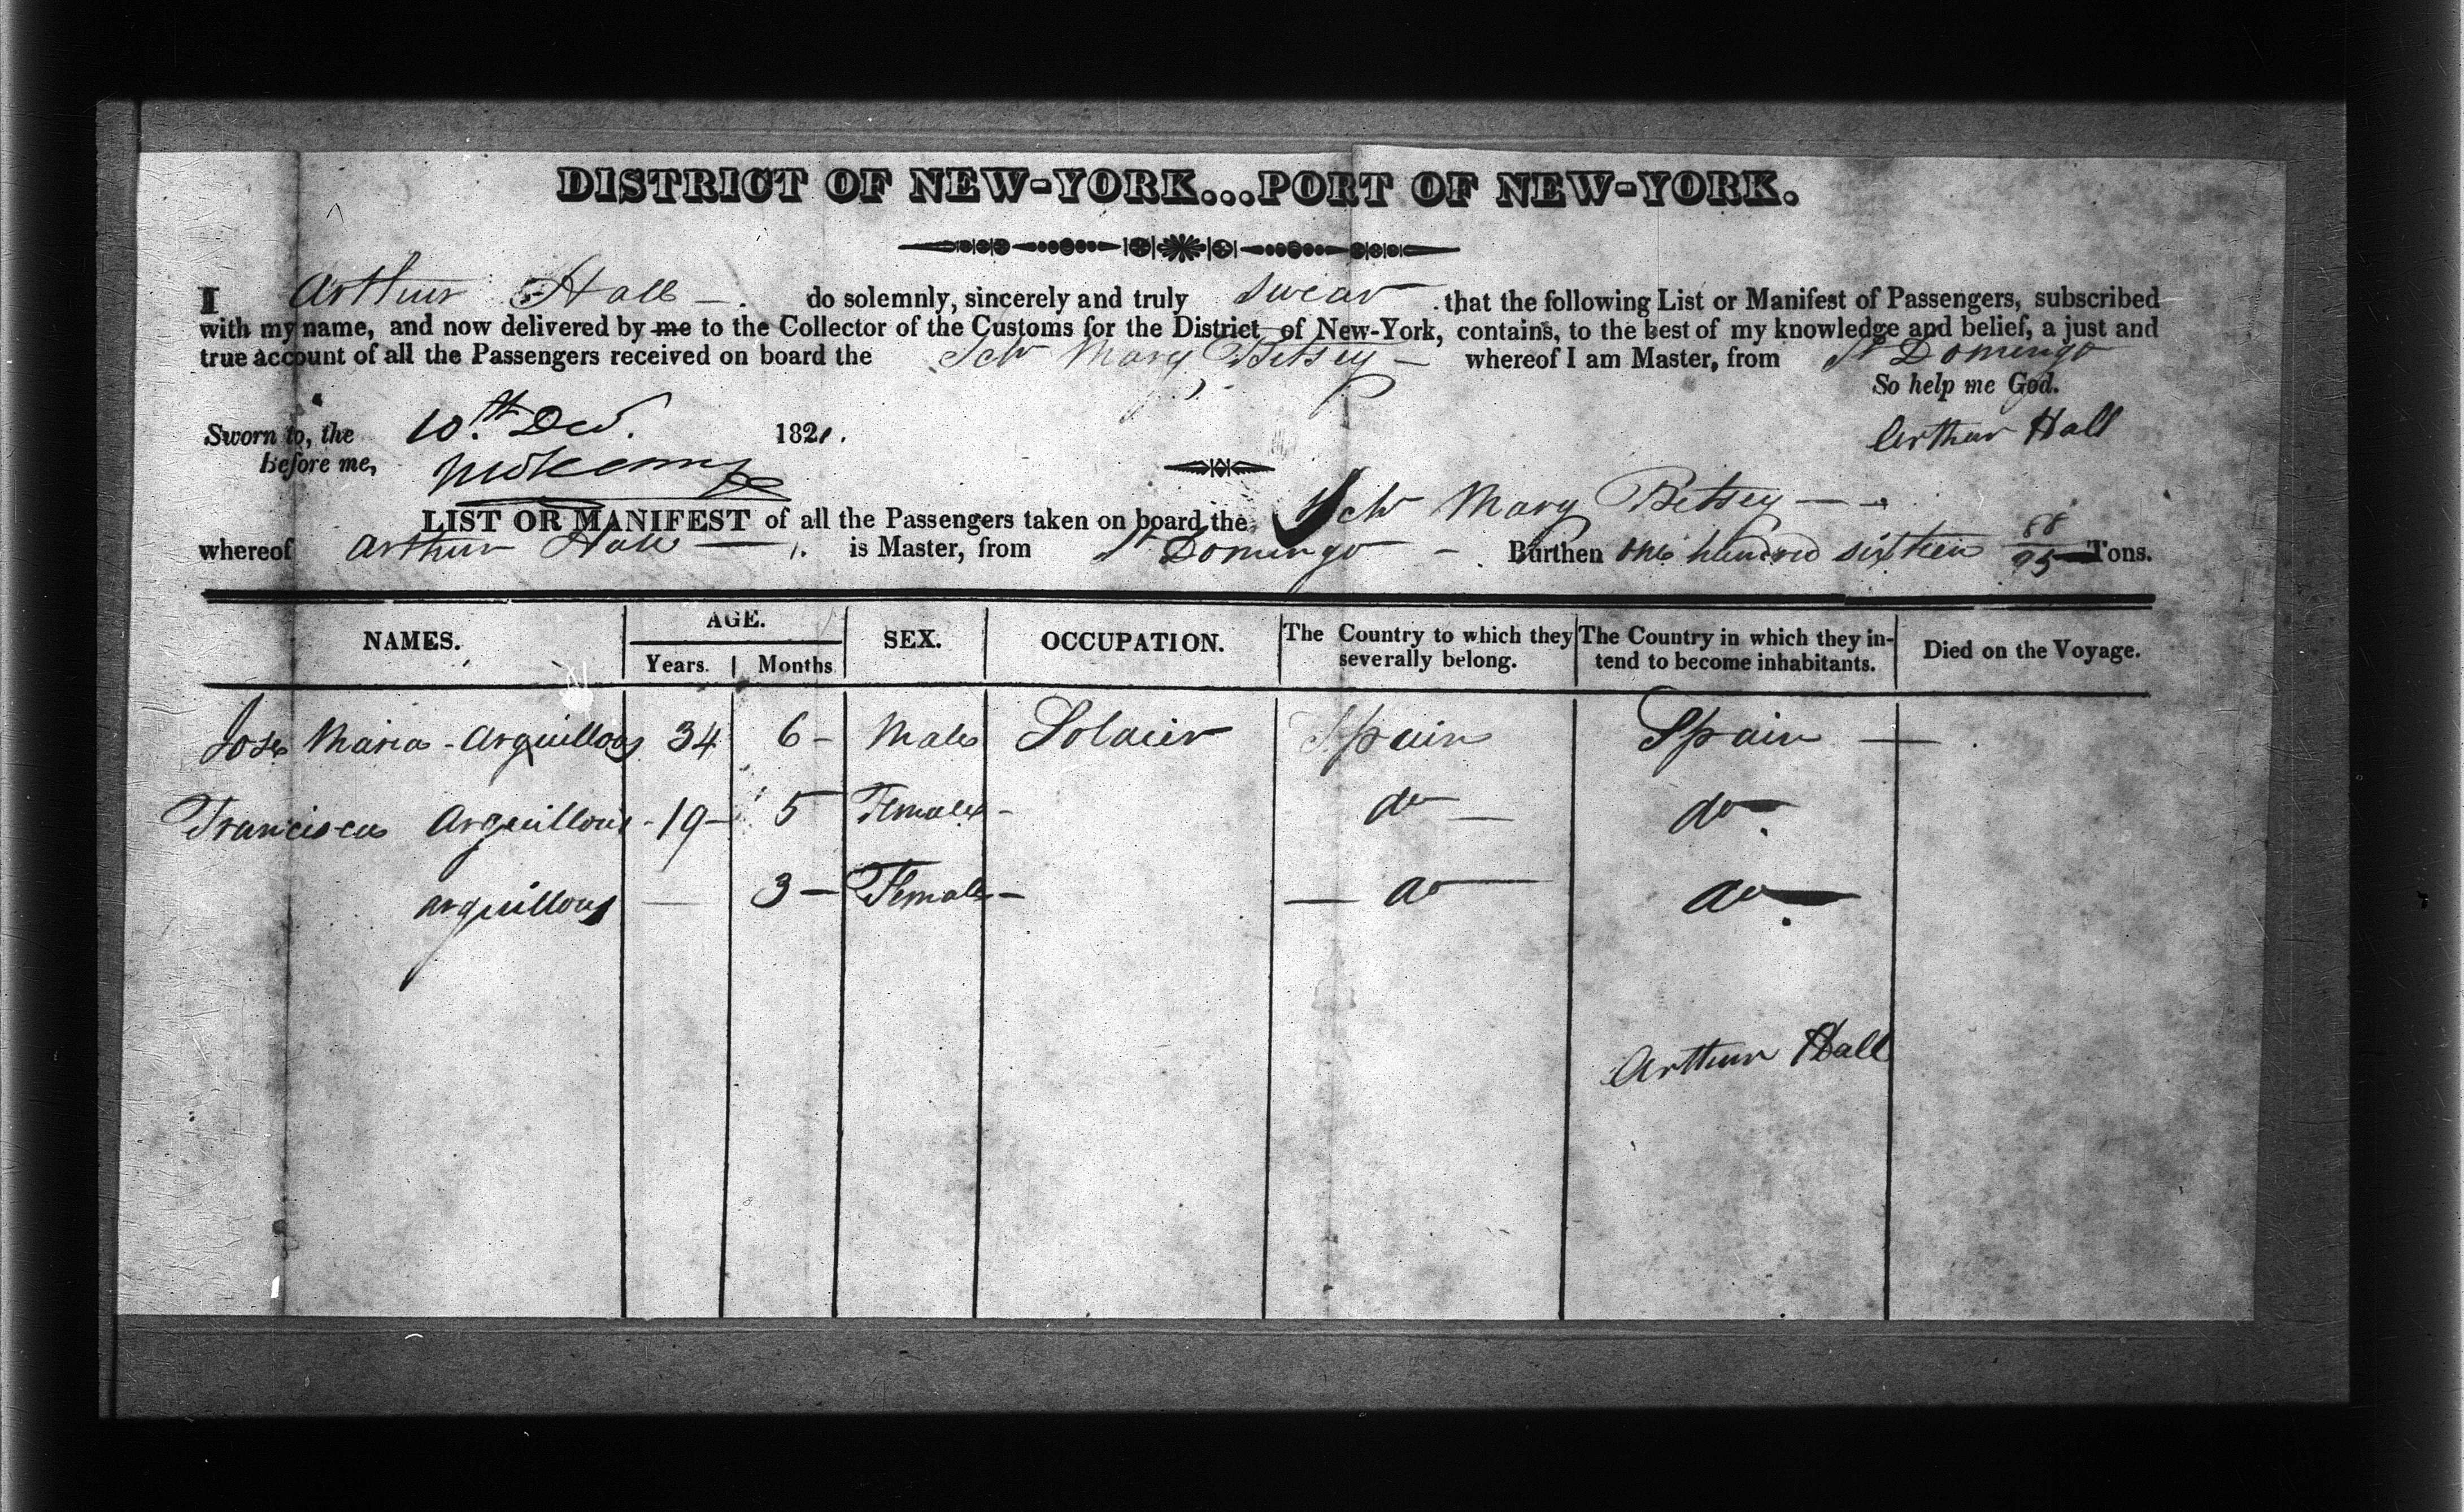 DISTRICT OF NEW-YORK...PORT OF NEW-YORK.
I Arthur Hall — do solemnly, sincerely and truly swear that the following List or Manifest of Passengers, subscribed
with my name, and now delivered by me to the Collector of the Customs for the District of New-York, contains, to the best of my knowledge and belief, a just and
true account of all the Passengers received on board the Schr Mary Betsey — whereof I am Master, from St Domingo
So help me God.
Sworn to, the 10th Dec. 1821. Arthur Hall
before me,
LIST OR MANIFEST of all the Passengers taken on board the Schr Mary Betsey —
whereof Arthur Hall — is Master, from St Domingo — Burthen one hundred sixteen 88/95 Tons.
NAMES. AGE. SEX. OCCUPATION. The Country to which they severally belong. The Country in which they intend to become inhabitants. Died on the Voyage.
Years. Months
Jose Maria - Arguillous 34 6 - Male Soldier Spain Spain —
Francisca Arguillous - 19 - 5 Female - do — do —
Arguillous — 3 — Female — — do — do —
Arthur Hall